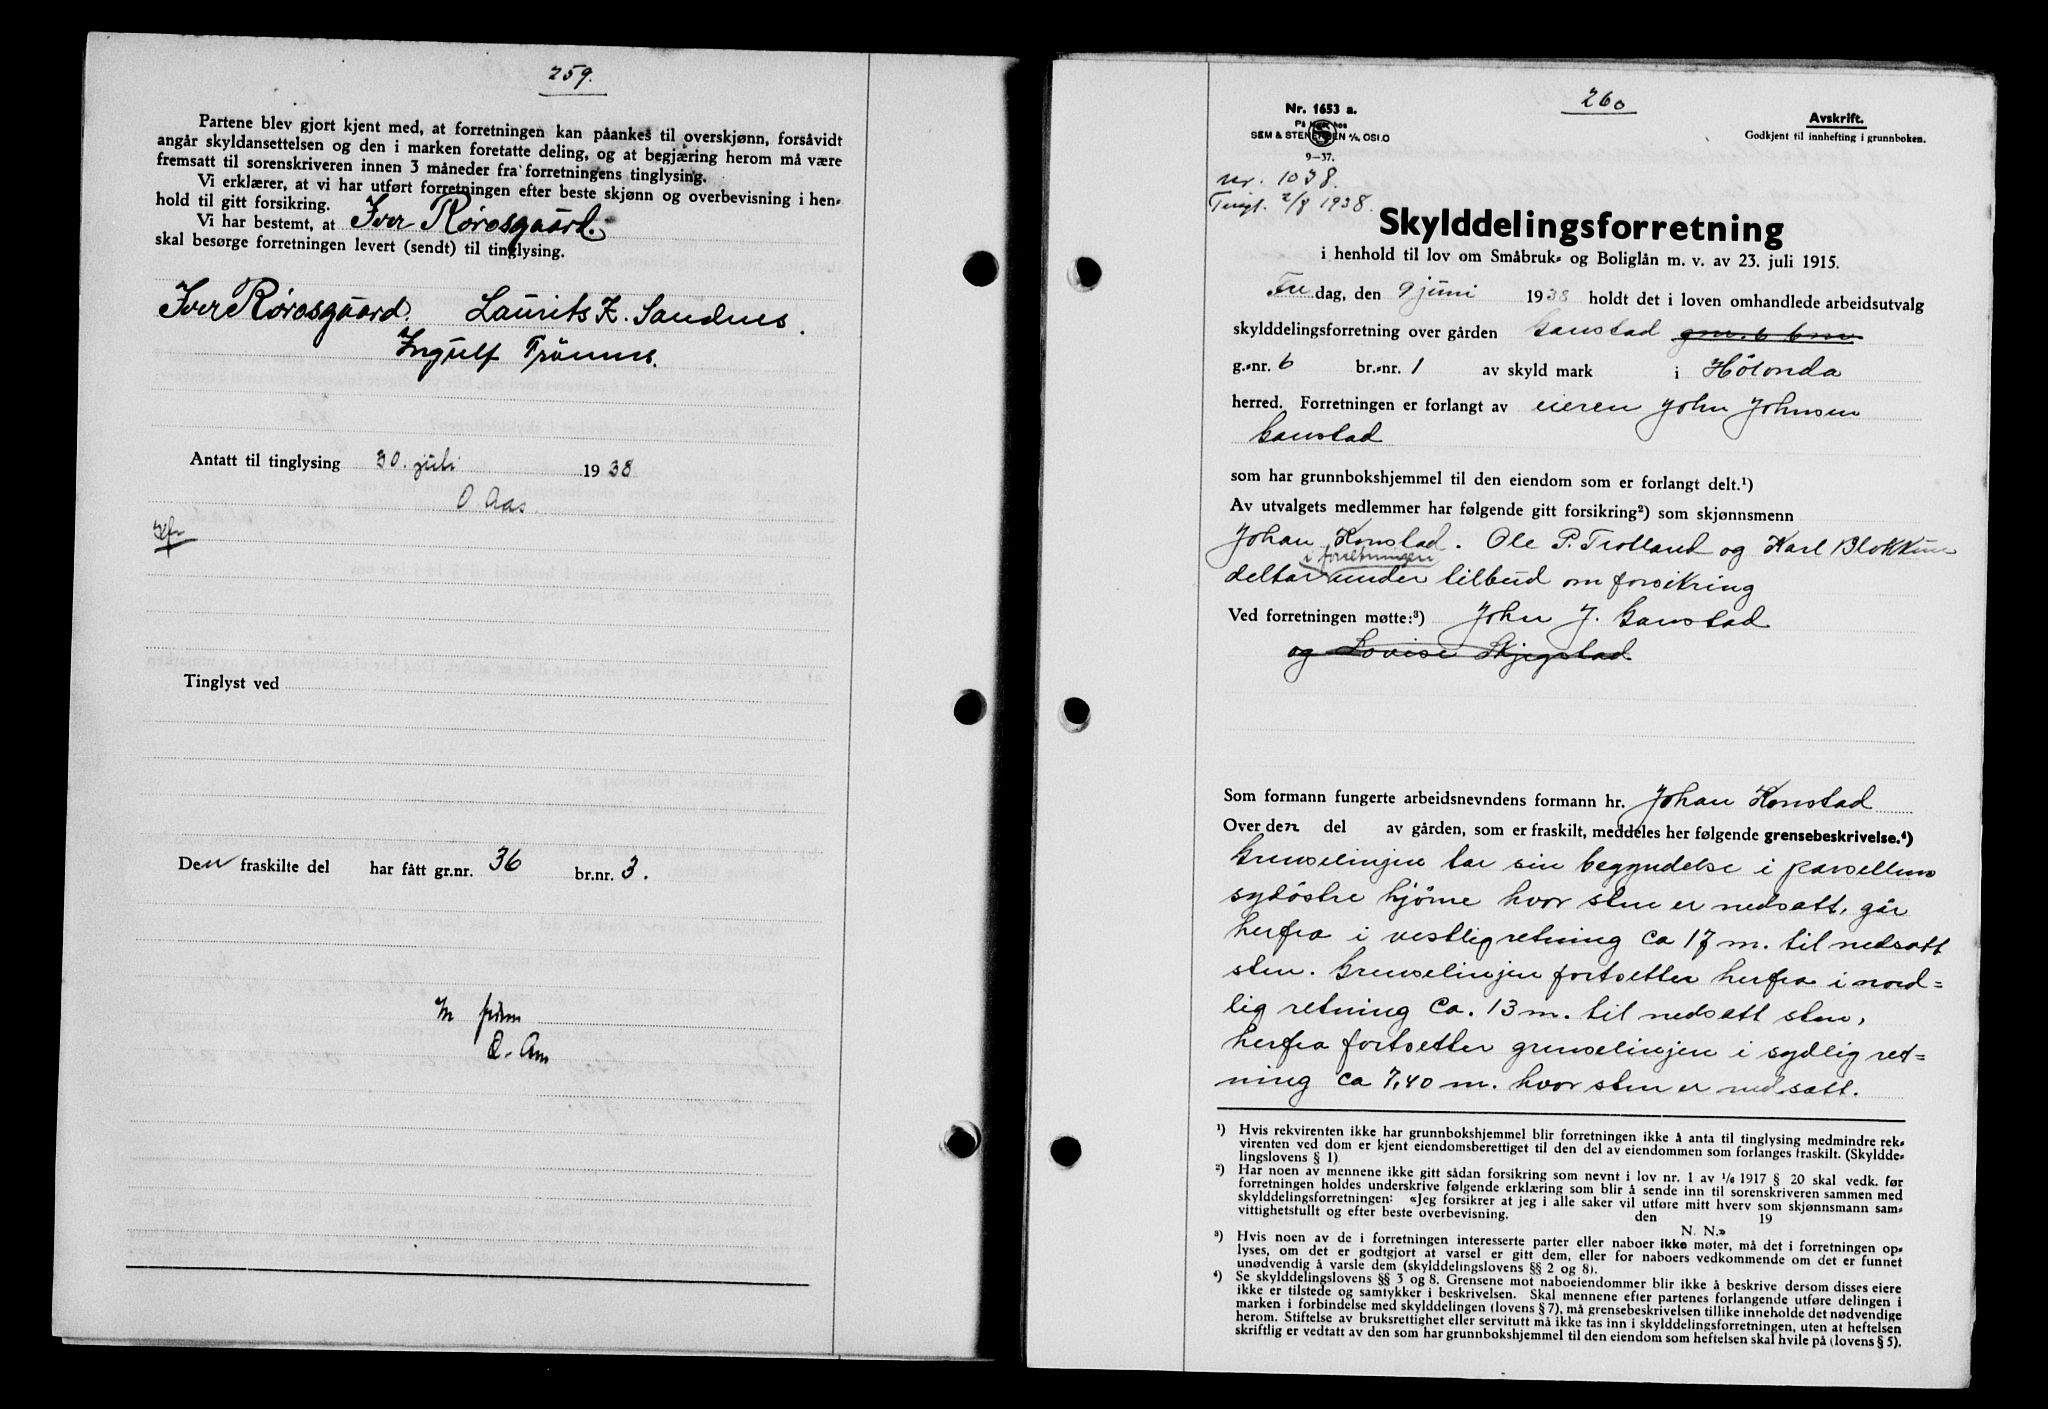 259.
Partene blev gjort kjent med, at forretningen kan påankes til overskjønn, forsåvidt
angår skyldansettelsen og den i marken foretatte deling, og at begjæring herom må være
fremsatt til sorenskriveren innen 3 måneder fra forretningens tinglysing.
Vi erklærer, at vi har utført forretningen efter beste skjønn og overbevisning i hen-
hold til gitt forsikring.
Vi har bestemt, at Iver Rørosgaard.
skal besørge forretningen levert (sendt) til tinglysing.
Iver Rørosgaard. Laurits Z. Sandnes.
Ingulf Trønnes.
Antatt til tinglysing 30. juli 1938
O Aas
Tinglyst ved
Den fraskilte del har fått gr.nr. 36 br.nr. 3.
260
Nr. 1653 a.
På lager hos
SEM & STENERSEN A/S OSLO
9—37.
Avskrift.
Godkjent til innhefting i grunnboken.
nr. 1038.
Tingl. 2/8 1938.
Skylddelingsforretning
i henhold til lov om Småbruk- og Boliglån m. v. av 23. juli 1915.
Fredag, den 9 juni 1938 holdt det i loven omhandlede arbeidsutvalg
skylddelingsforretning over gården Gaustad gnr. 6 bnr
g.-nr. 6 br.-nr. 1 av skyld mark i Hølonda
herred. Forretningen er forlangt av eieren John Johnsen
Gaustad
som har grunnbokshjemmel til den eiendom som er forlangt delt.¹)
Av utvalgets medlemmer har følgende gitt forsikring²) som skjønnsmenn
Johan Konstad. Ole P. Trotland og Karl Blokkum
i forretningen
deltar under tilbud om forsikring
Ved forretningen møtte:³) John J. Gaustad
og Lovise Skjegstad
Som formann fungerte arbeidsnevndens formann hr. Johan Konstad
Over den del av gården, som er fraskilt, meddeles her følgende grensebeskrivelse.⁴)
Grenselinjen tar sin begyndelse i parsellens
sydøstre hjørne hvor sten er nedsatt, går
herfra i vestlig retning ca 17 m. til nedsatt
sten. Grenselinjen fortsetter herfra i nord=
lig retning ca. 13 m. til nedsatt sten,
herfra fortsetter grenselinjen i sydlig ret=
ning ca 7,40 m. hvor sten er nedsatt.
¹) Hvis rekvirenten ikke har grunnbokshjemmel blir forretningen ikke å anta til tinglysing medmindre rek-
virenten ved dom er kjent eiendomsberettiget til den del av eiendommen som forlanges fraskilt. (Skyldde-
lingslovens § 1)
²) Har noen av mennene ikke gitt sådan forsikring som nevnt i lov nr. 1 av 1/6 1917 § 20 skal vedk. før
forretningen holdes underskrive følgende erklæring som blir å sende inn til sorenskriveren sammen med
skylddelingsforretningen: «Jeg forsikrer at jeg i alle saker vil utføre mitt hverv som skjønnsmann sam-
vittighetsfullt og efter beste overbevisning. den 19
N. N.»
³) Hvis noen av de i forretningen interesserte parter eller naboer ikke møter, må det i forretningen op-
lyses, om det er godtgjort at varsel er gitt dem, eller for naboers vedkommende om det er funnet
unødvendig å varsle dem (skylddelingslovens §§ 2 og 8).
⁴) Se skylddelingslovens §§ 3 og 8. Grensene mot naboeiendommer blir ikke å beskrive dersom disses eiere
ikke er tilstede og samtykker i beskrivelsen. Skal mennene efter partenes forlangende utføre delingen i
marken i forbindelse med skylddelingen (lovens § 7), må grensebeskrivelsen tillike inneholde det nødvendige
herom. Stiftelse av bruksrettighet eller servitutt må ikke tas inn i skylddelingsforretningen, uten at heftelsen
skriftlig er vedtatt av den som har grunnbokshjemmel til den eiendom som heftelsen skal hvile på (lovens § 5).